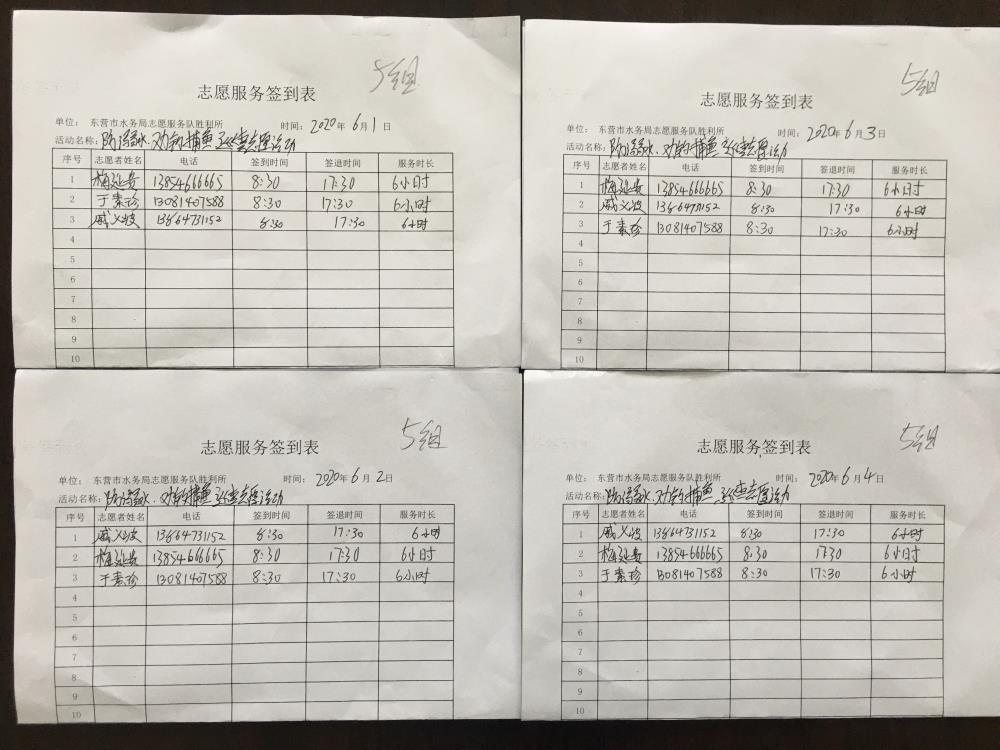 5组
志愿服务签到表
单位： 东营市水务局志愿服务队胜利所 时间： 2020年 6月 1日
活动名称：防溺水.劝钓捕鱼 志愿活动
序号 志愿者姓名 电话 签到时间 签退时间 服务时长
1 梅延安 13854666665 8:30 17:30 6小时
2 于素珍 13081407588 8:30 17:30 6小时
3 戚义波 13864731152 8:30 17:30 6小时
4
5
6
7
8
9
10
5组
志愿服务签到表
单位： 东营市水务局志愿服务队胜利所 时间： 2020年 6月 3日
活动名称：防溺水.劝钓捕鱼 志愿活动
序号 志愿者姓名 电话 签到时间 签退时间 服务时长
1 梅延安 13854666665 8:30 17:30 6小时
2 戚义波 13864731152 8:30 17:30 6小时
3 于素珍 13081407588 8:30 17:30 6小时
4
5
6
7
8
9
10
5组
志愿服务签到表
单位： 东营市水务局志愿服务队胜利所 时间： 2020年 6月 2日
活动名称：防溺水.劝钓捕鱼 志愿活动
序号 志愿者姓名 电话 签到时间 签退时间 服务时长
1 戚义波 13864731152 8:30 17:30 6小时
2 梅延安 13854666665 8:30 17:30 6小时
3 于素珍 13081407588 8:30 17:30 6小时
4
5
6
7
8
9
10
5组
志愿服务签到表
单位： 东营市水务局志愿服务队胜利所 时间： 2020年 6月 4日
活动名称：防溺水.劝钓捕鱼 志愿活动
序号 志愿者姓名 电话 签到时间 签退时间 服务时长
1 戚义波 13864731152 8:30 17:30 6小时
2 梅延安 13854666665 8:30 17:30 6小时
3 于素珍 13081407588 8:30 17:30 6小时
4
5
6
7
8
9
10